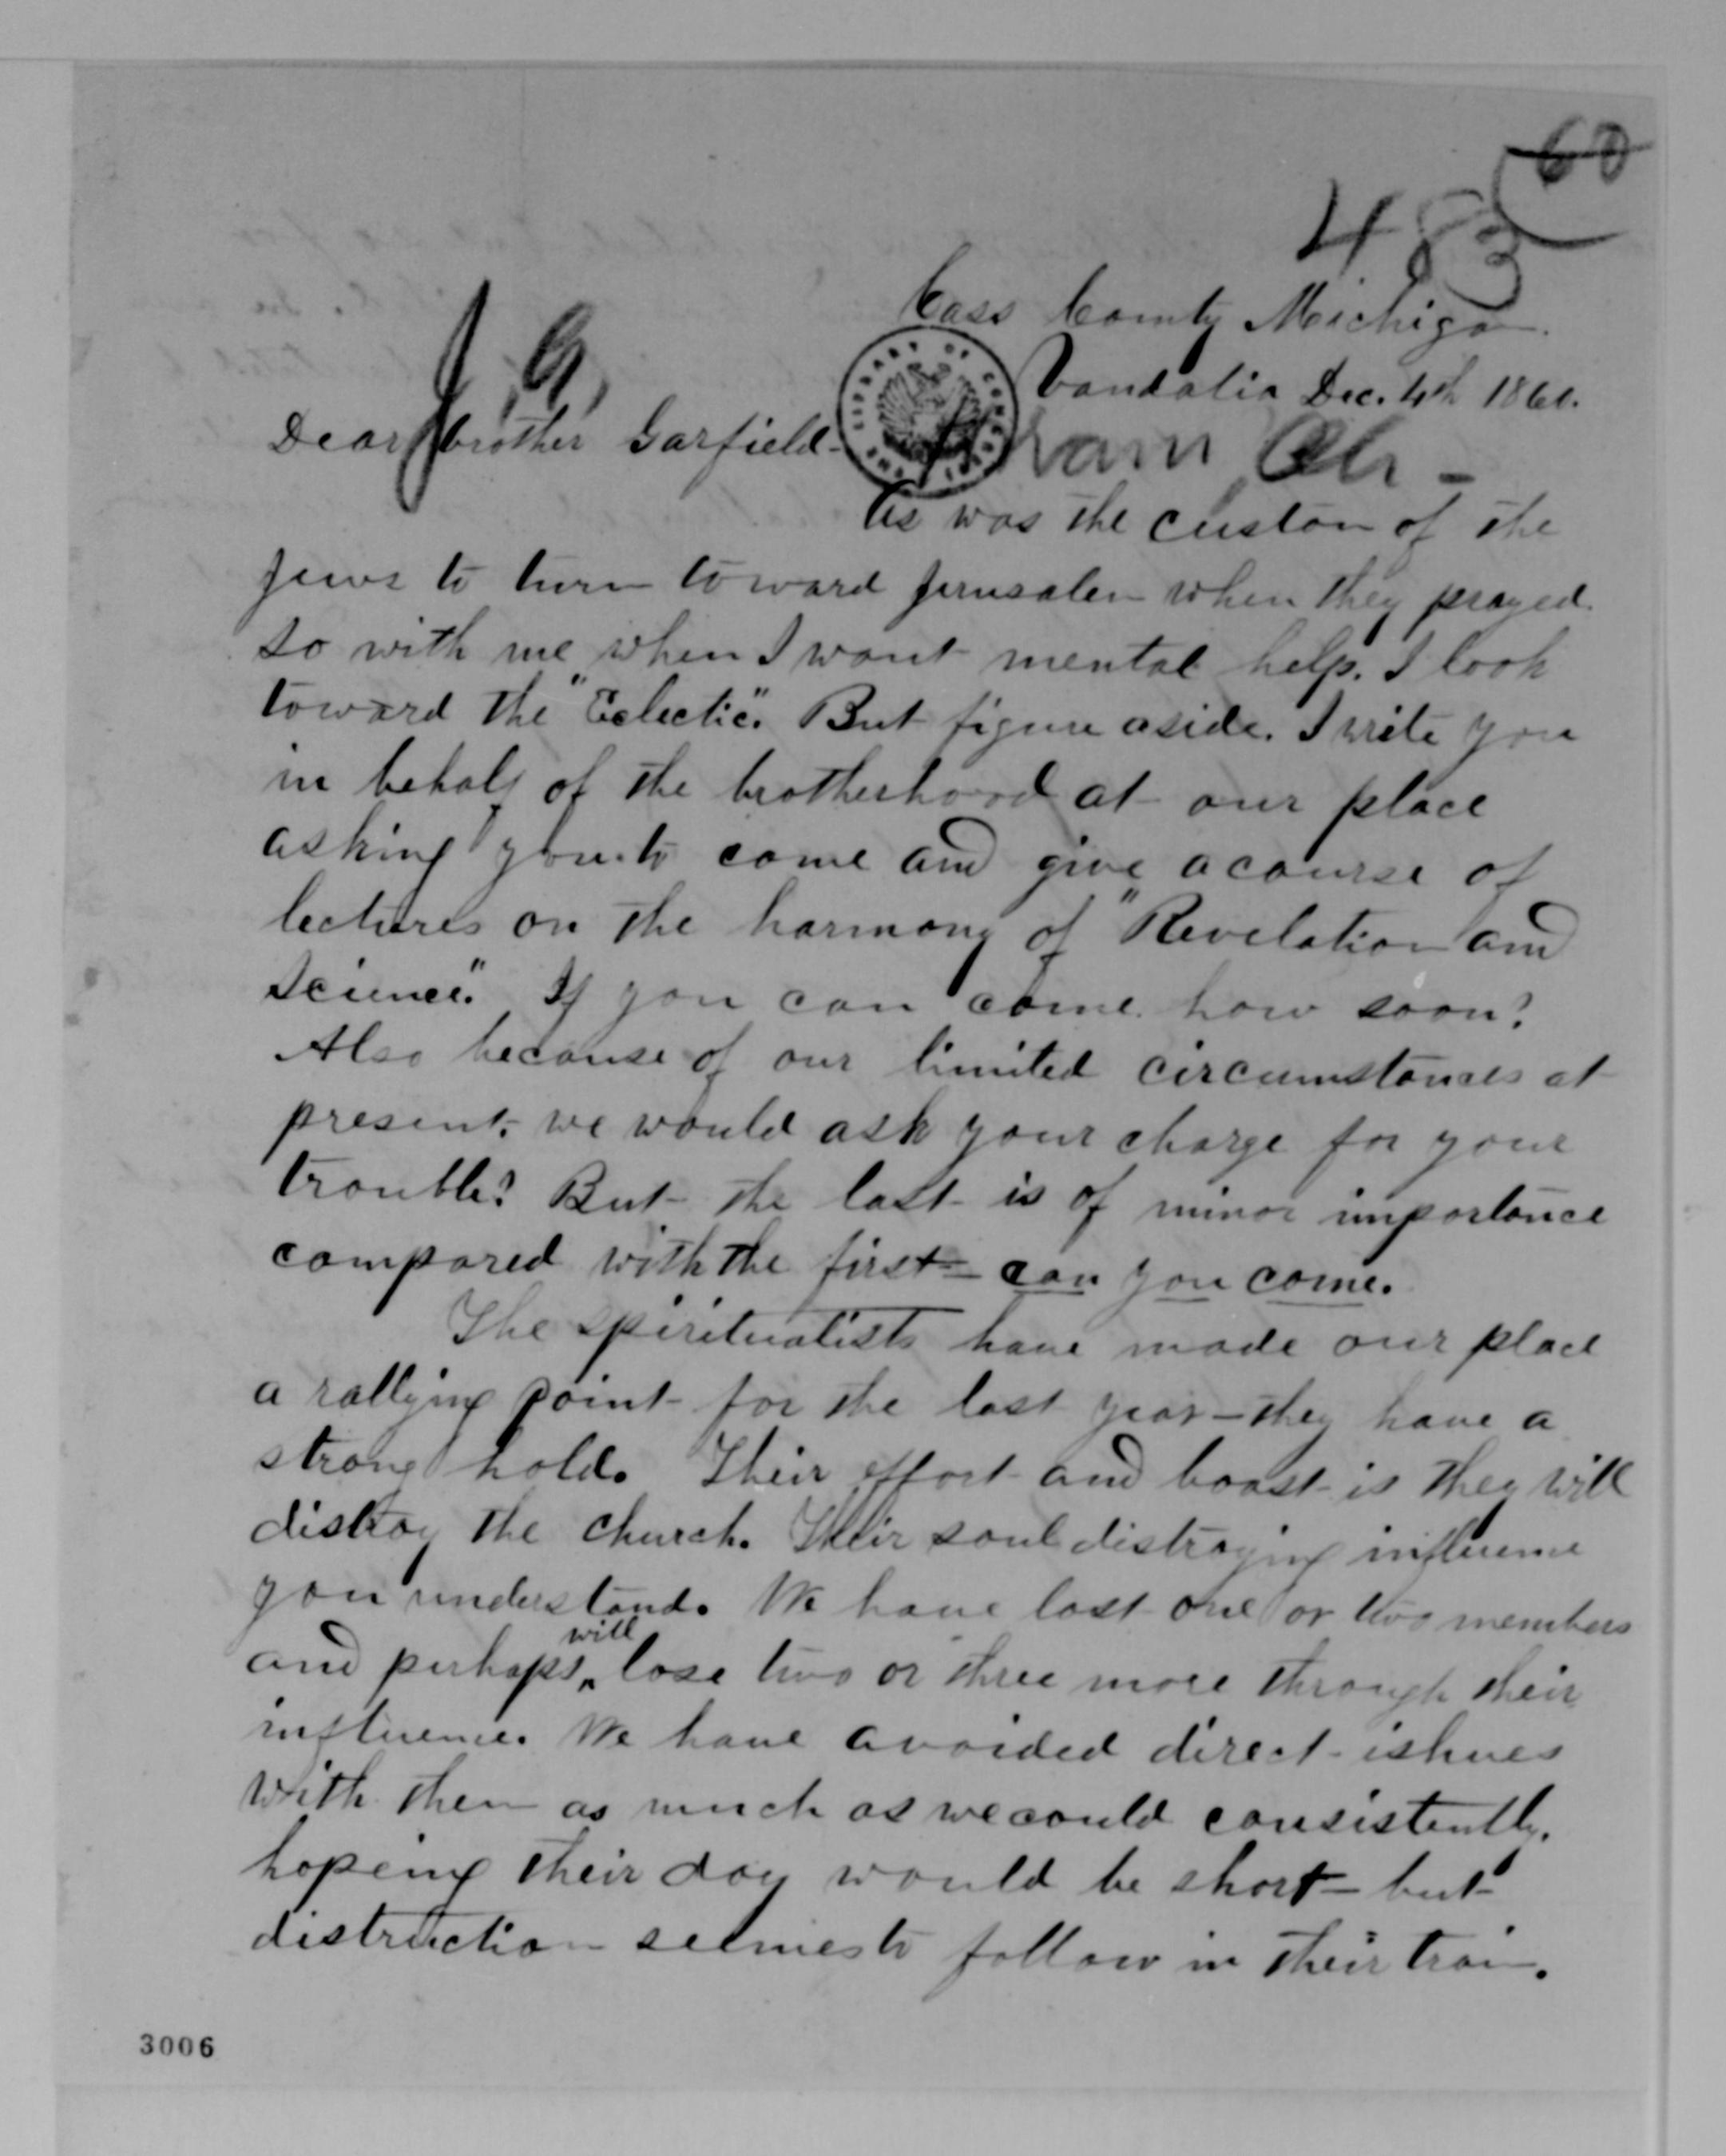 60
483
Cass County Michigan.
Vandalia Dec. 4th 1860.
J. G.
Dear brother Garfield-
Hiram Oh -
As was the custom of the
jews to turn toward jerusalem when they prayed.
so with me when I want mental help. I look
toward the "Eclectic". But figure aside. I write you
in behalf of the brotherhood at our place
asking you to come and give a course of
lectures on the harmony of "Revelation and
Science." If you can come how soon?
Also because of our limited circumstances at
present, we would ask your charge for your
trouble? But the last is of minor importance
compared with the first - can you come.
The spiritualists have made our place
a rallying point for the last year - they have a
strong hold. Their effort and boast is they will
distroy the church. Their soul distroying influence
you understand. We have lost one or two members
and perhaps will lose two or three more through their
influence. We have avoided direct ishues
with them as much as we could consistently.
hopeing their day would be short - but
distruction seemes to follow in their train.
3006
LIBRARY OF CONGRESS